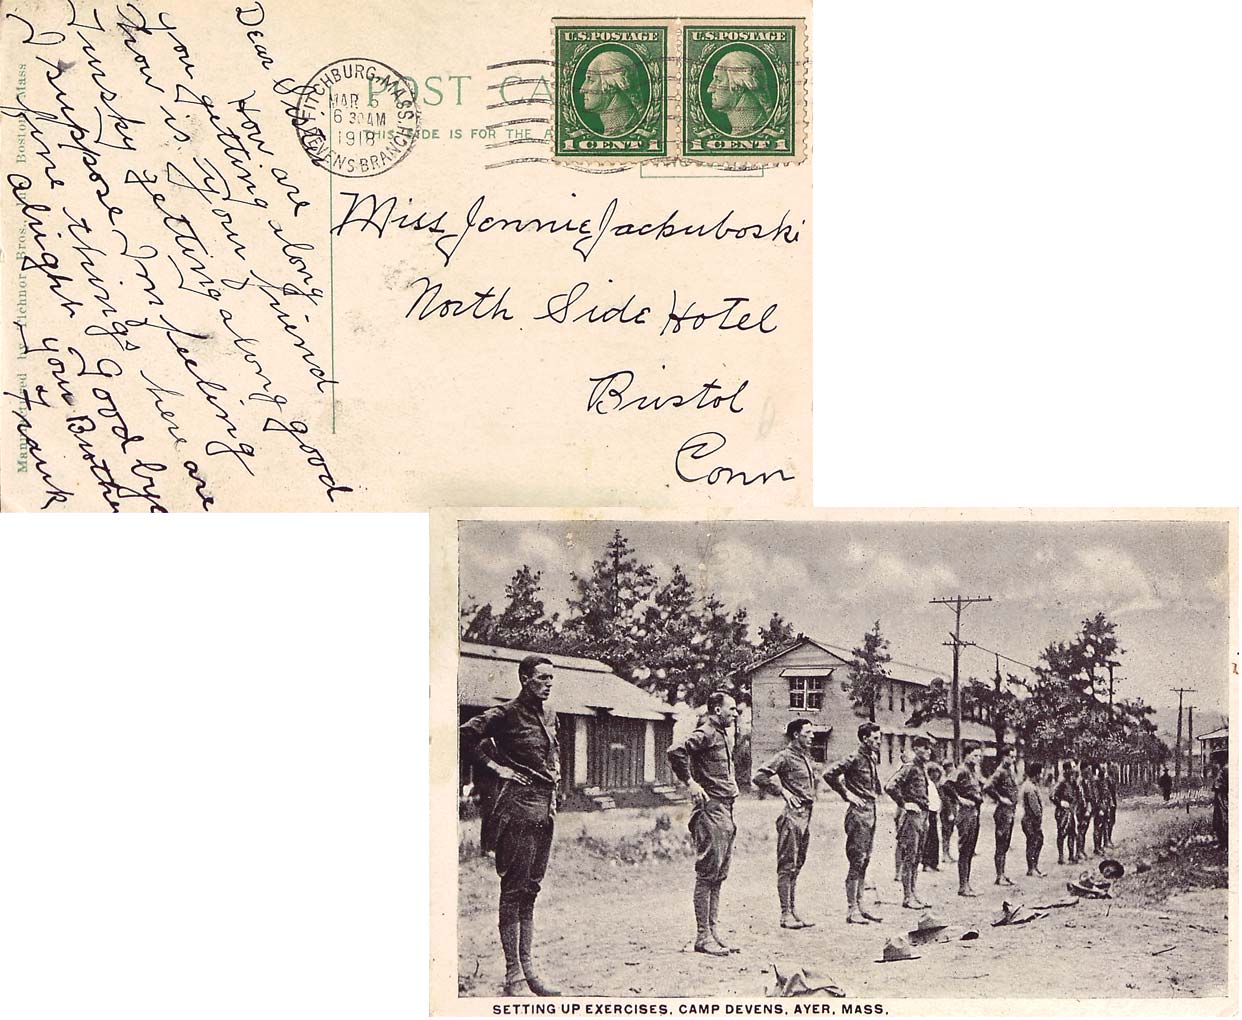 Dear Sister
How are
you getting along
how is your friend
Tursky getting along good
I suppose Im feeling
fine things here are
alright Good bye
your Brother
Frank
Manufactured by Tichnor Bros., Boston, Mass
POST CA
THIS SIDE IS FOR THE A
FITCHBURG, MASS.
MAR 5
6 30 AM
1918
DEVENS BRANCH
U.S. POSTAGE
1 CENT 1
U.S. POSTAGE
1 CENT 1
Miss Jennie Jackuboski
North Side Hotel
Bristol
Conn
SETTING UP EXERCISES, CAMP DEVENS, AYER, MASS.